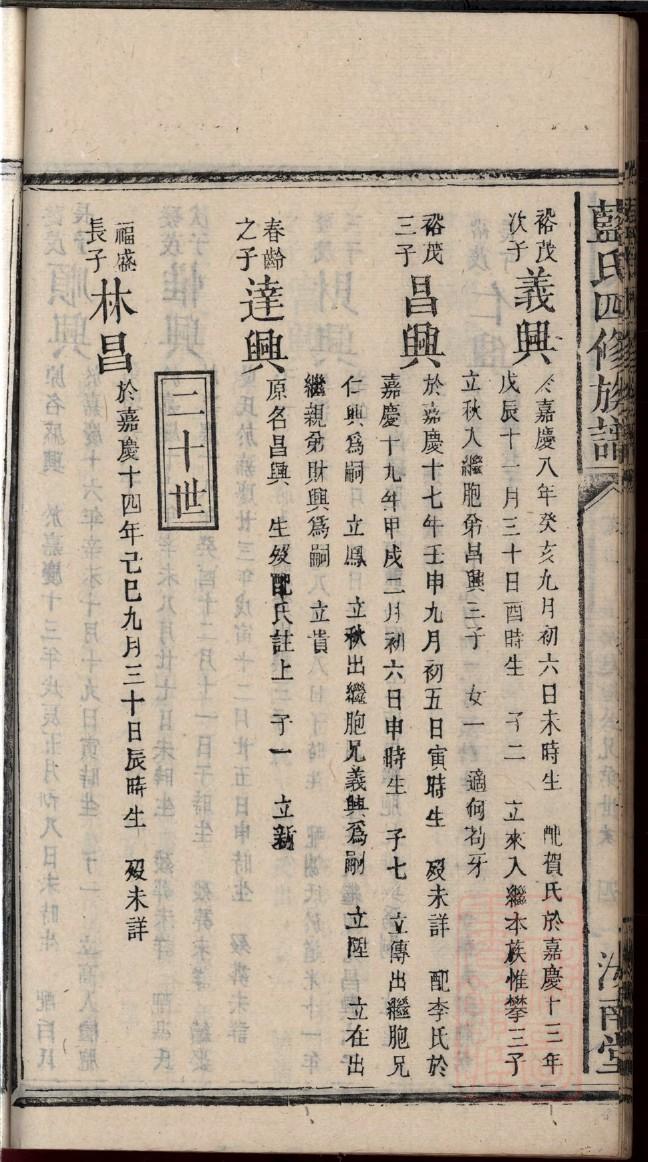 藍氏四修族譜
汝南堂
裕茂
次子
義興
於嘉慶八年癸亥九月初六日未時生 配賀氏於嘉慶十三年
戊辰十一月三十日酉時生 子二 立來入繼本族惟攀三子
立秋入繼胞弟昌興三子 女一 適何
裕茂
三子
昌興
於嘉慶十七年壬申九月初五日寅時生 歿未詳 配李氏於
嘉慶十九年甲戌二月初六日申時生 子七 立傳出繼胞兄
仁興爲嗣 立鳳 立秋出繼胞兄義興爲嗣 立陞 立在出
繼親弟財興爲嗣 立貴
春齡
之子
達興
原名昌興 生歿配氏註上 子一 立新
二十世
福盛
長子
林昌
於嘉慶十四年己巳九月三十日辰時生 歿未詳